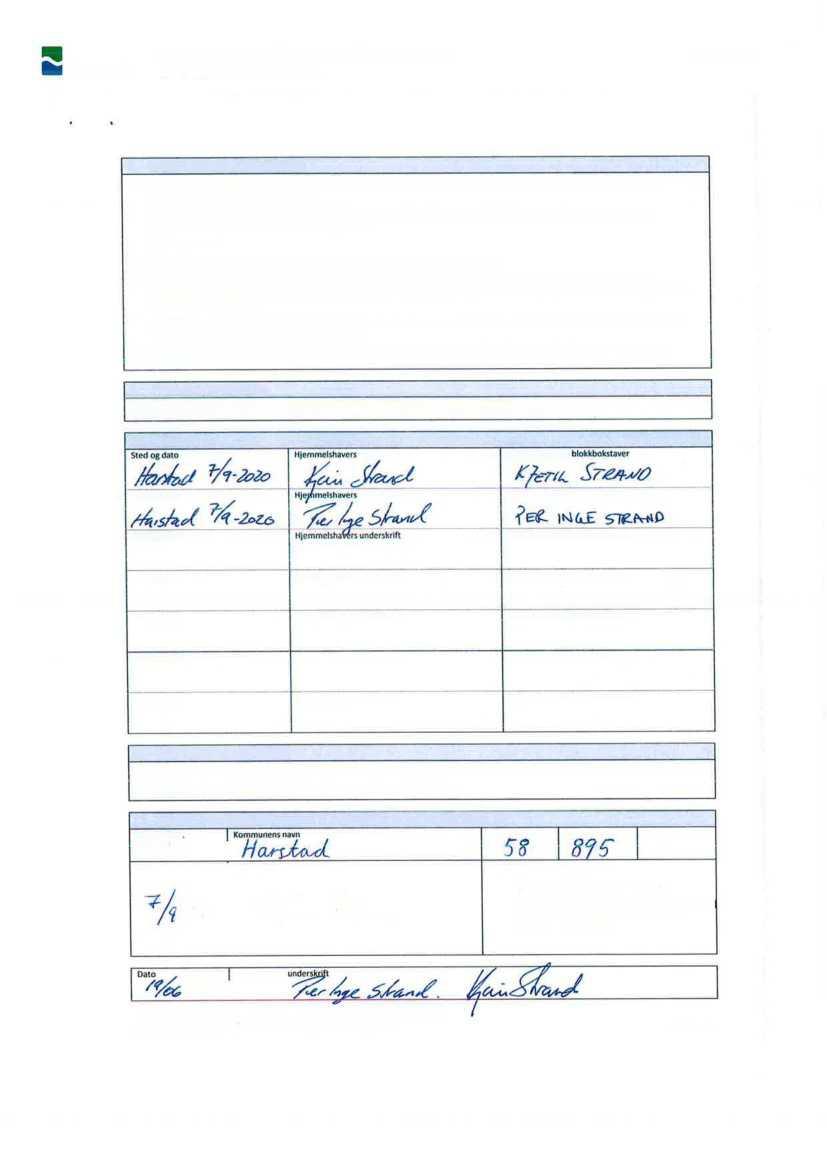 Sted og dato Hjemmelshavers blokkbokstaver
Harstad 7/9-2020 Strand KJETIL STRAND
Hjemmelshavers
Harstad 7/9-2020 Per Inge Strand PER INGE STRAND
Hjemmelshavers underskrift
Kommunens navn
Harstad 58 895
7/9
Dato underskrift
19/06 Per Inge Strand. Strand